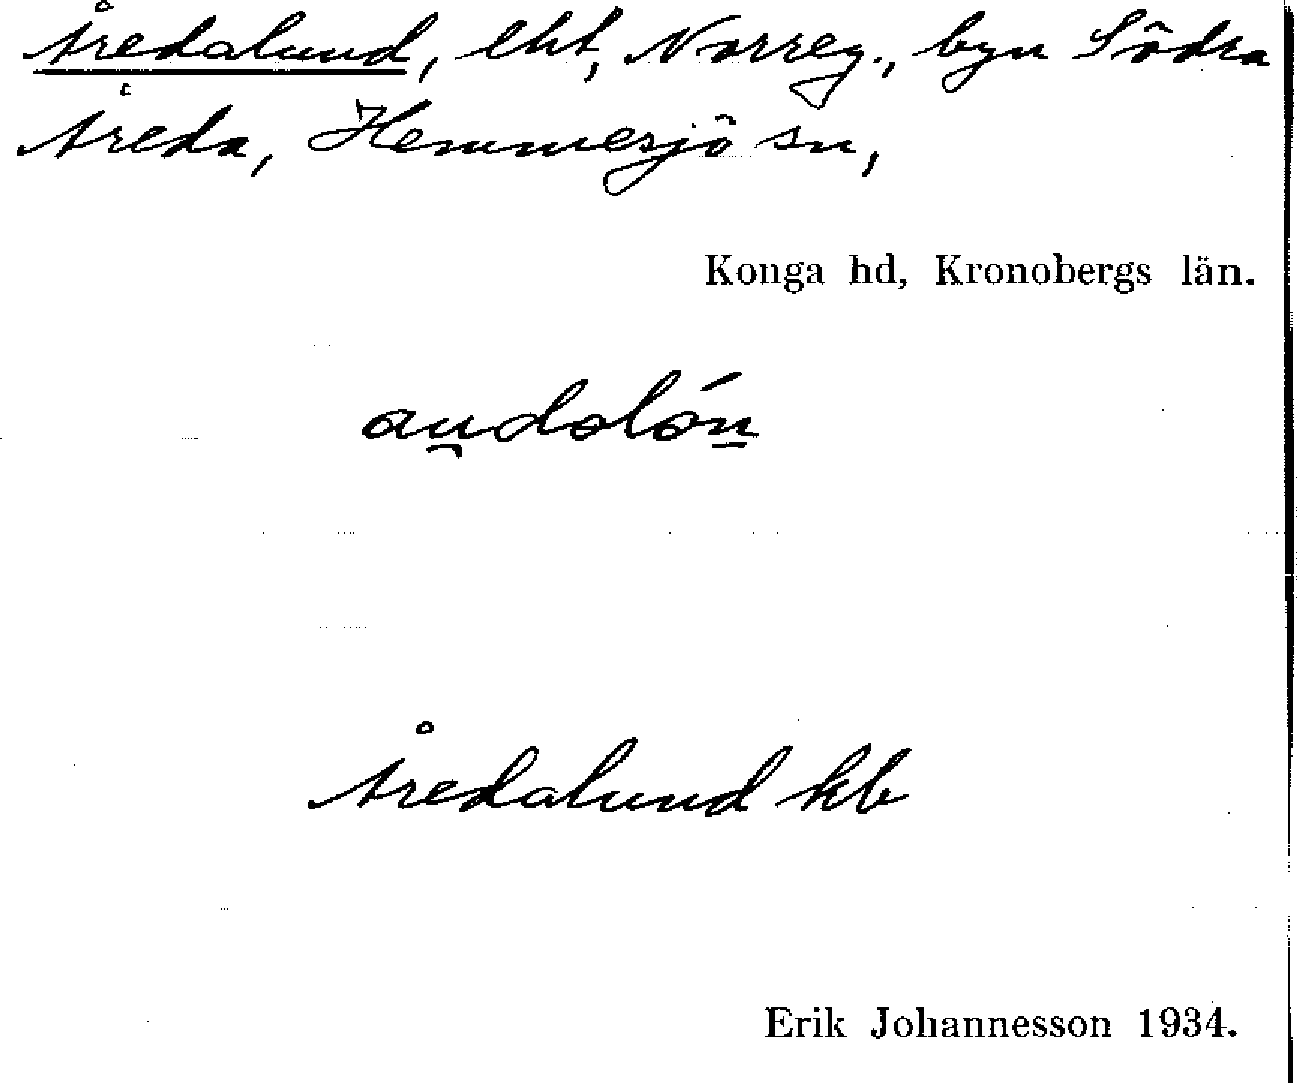 Åredalund, lht, Norreg., byn Södra
Åreda, Hemmesjö sn,
Konga hd, Kronobergs län.
Åredalund kb
Erik Johannesson 1934.